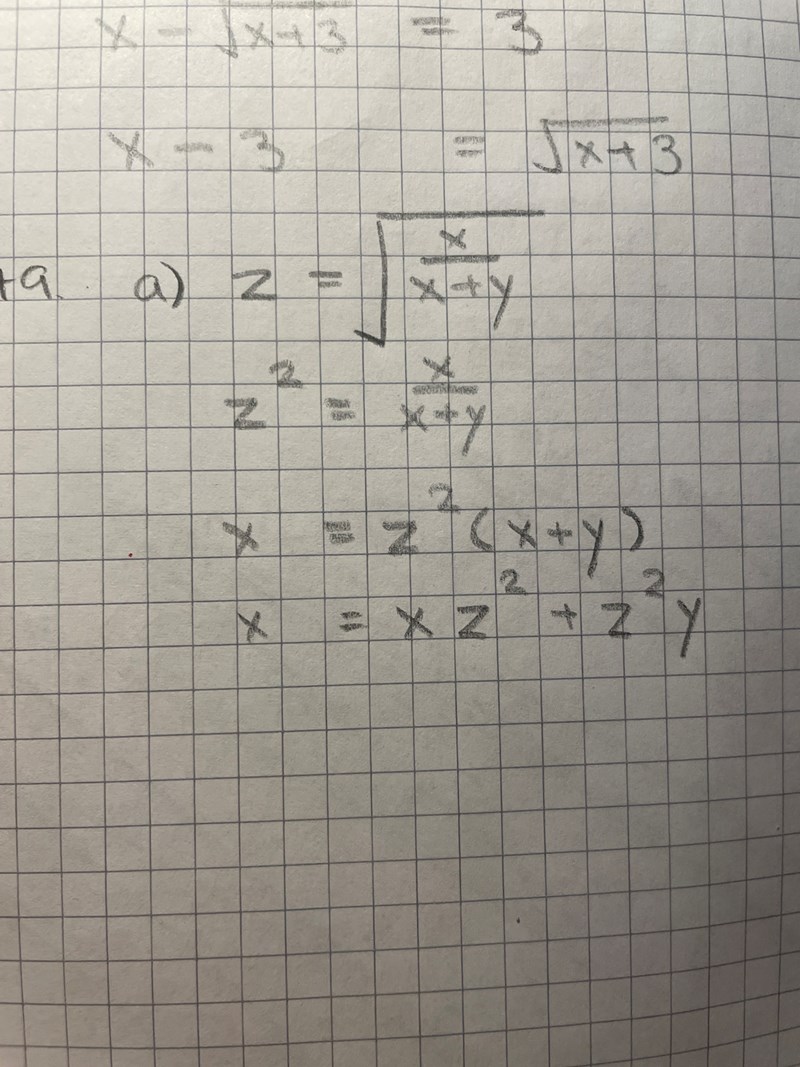 x - √x+3 = 3
x - 3 = √x+3
a) z = √x/x+y
z² = x/x+y
x = z²(x+y)
x = xz² + z²y